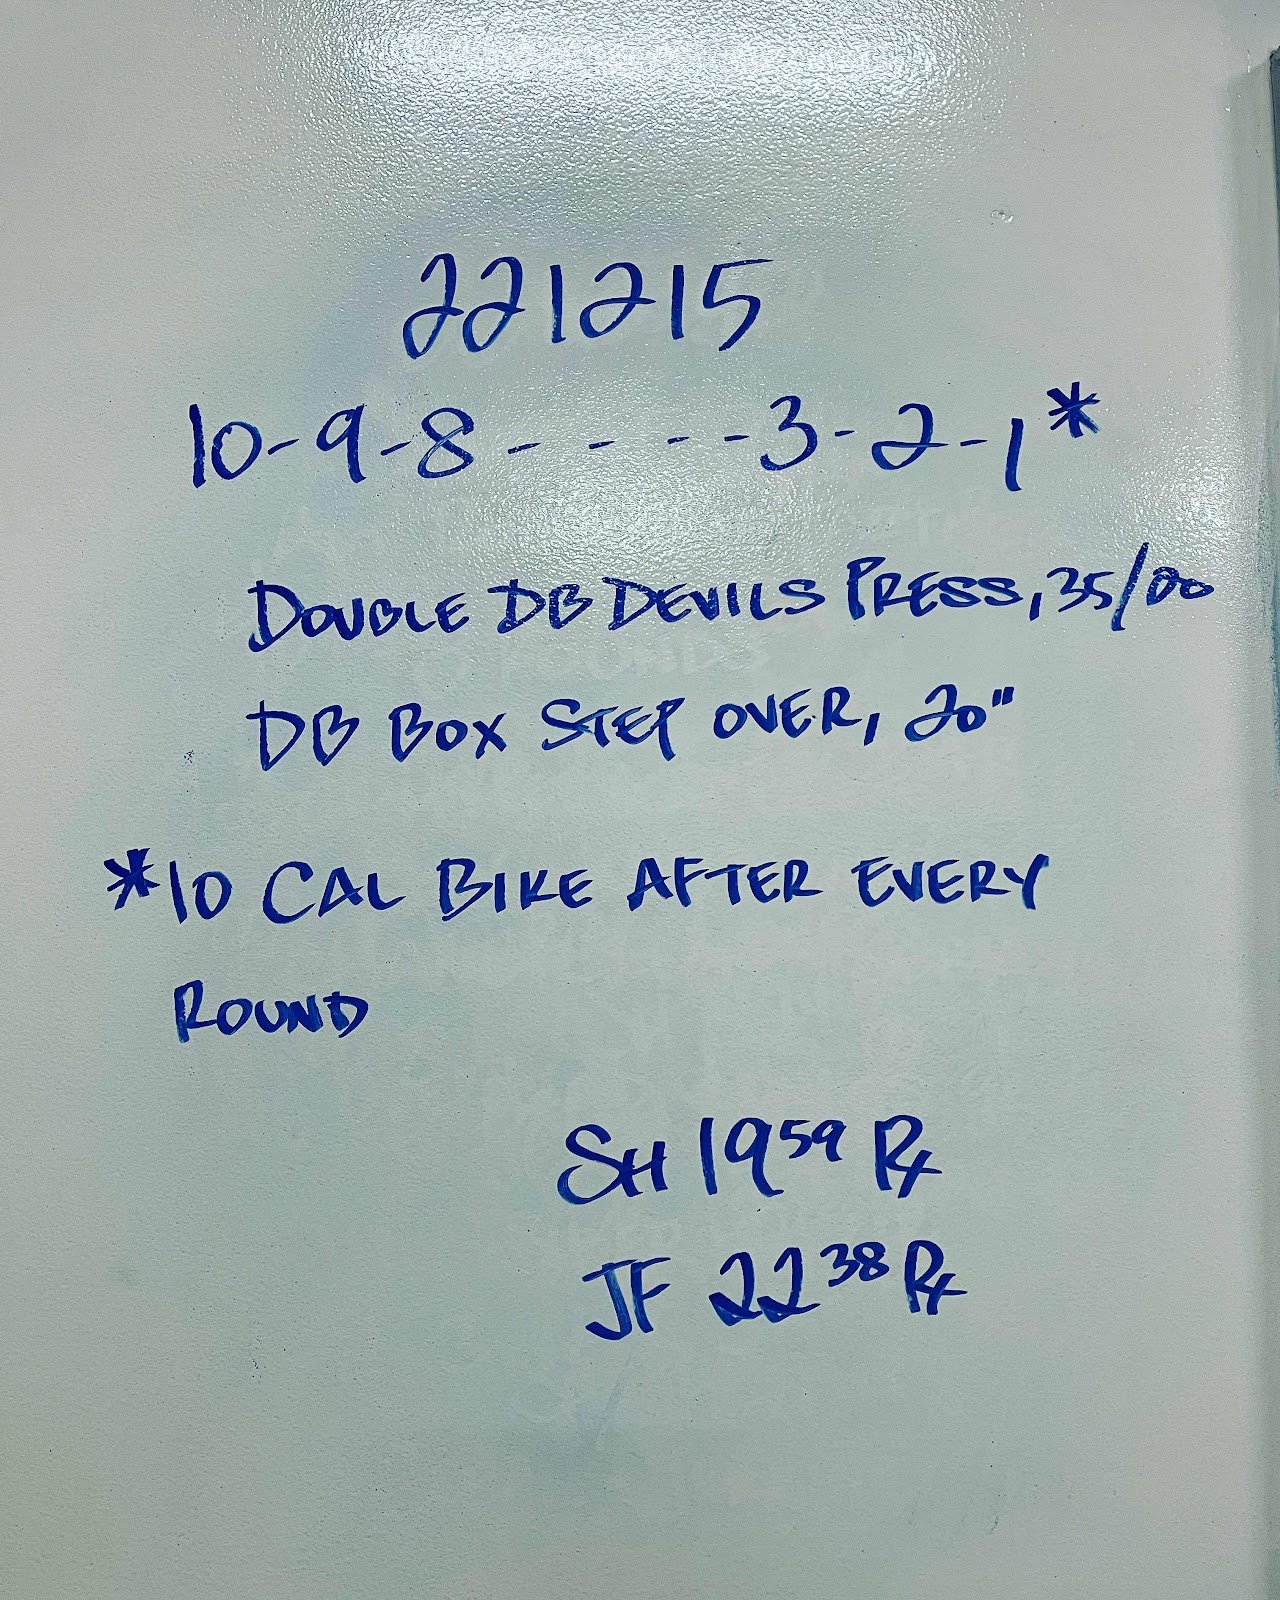 221215
10-9-8-----3-2-1*
DOUBLE DB DEVILS PRESS, 35/20
DB BOX STEP OVER, 20"
*10 CAL BIKE AFTER EVERY
ROUND
SH 19 59 Rx
JF 22 38 Rx